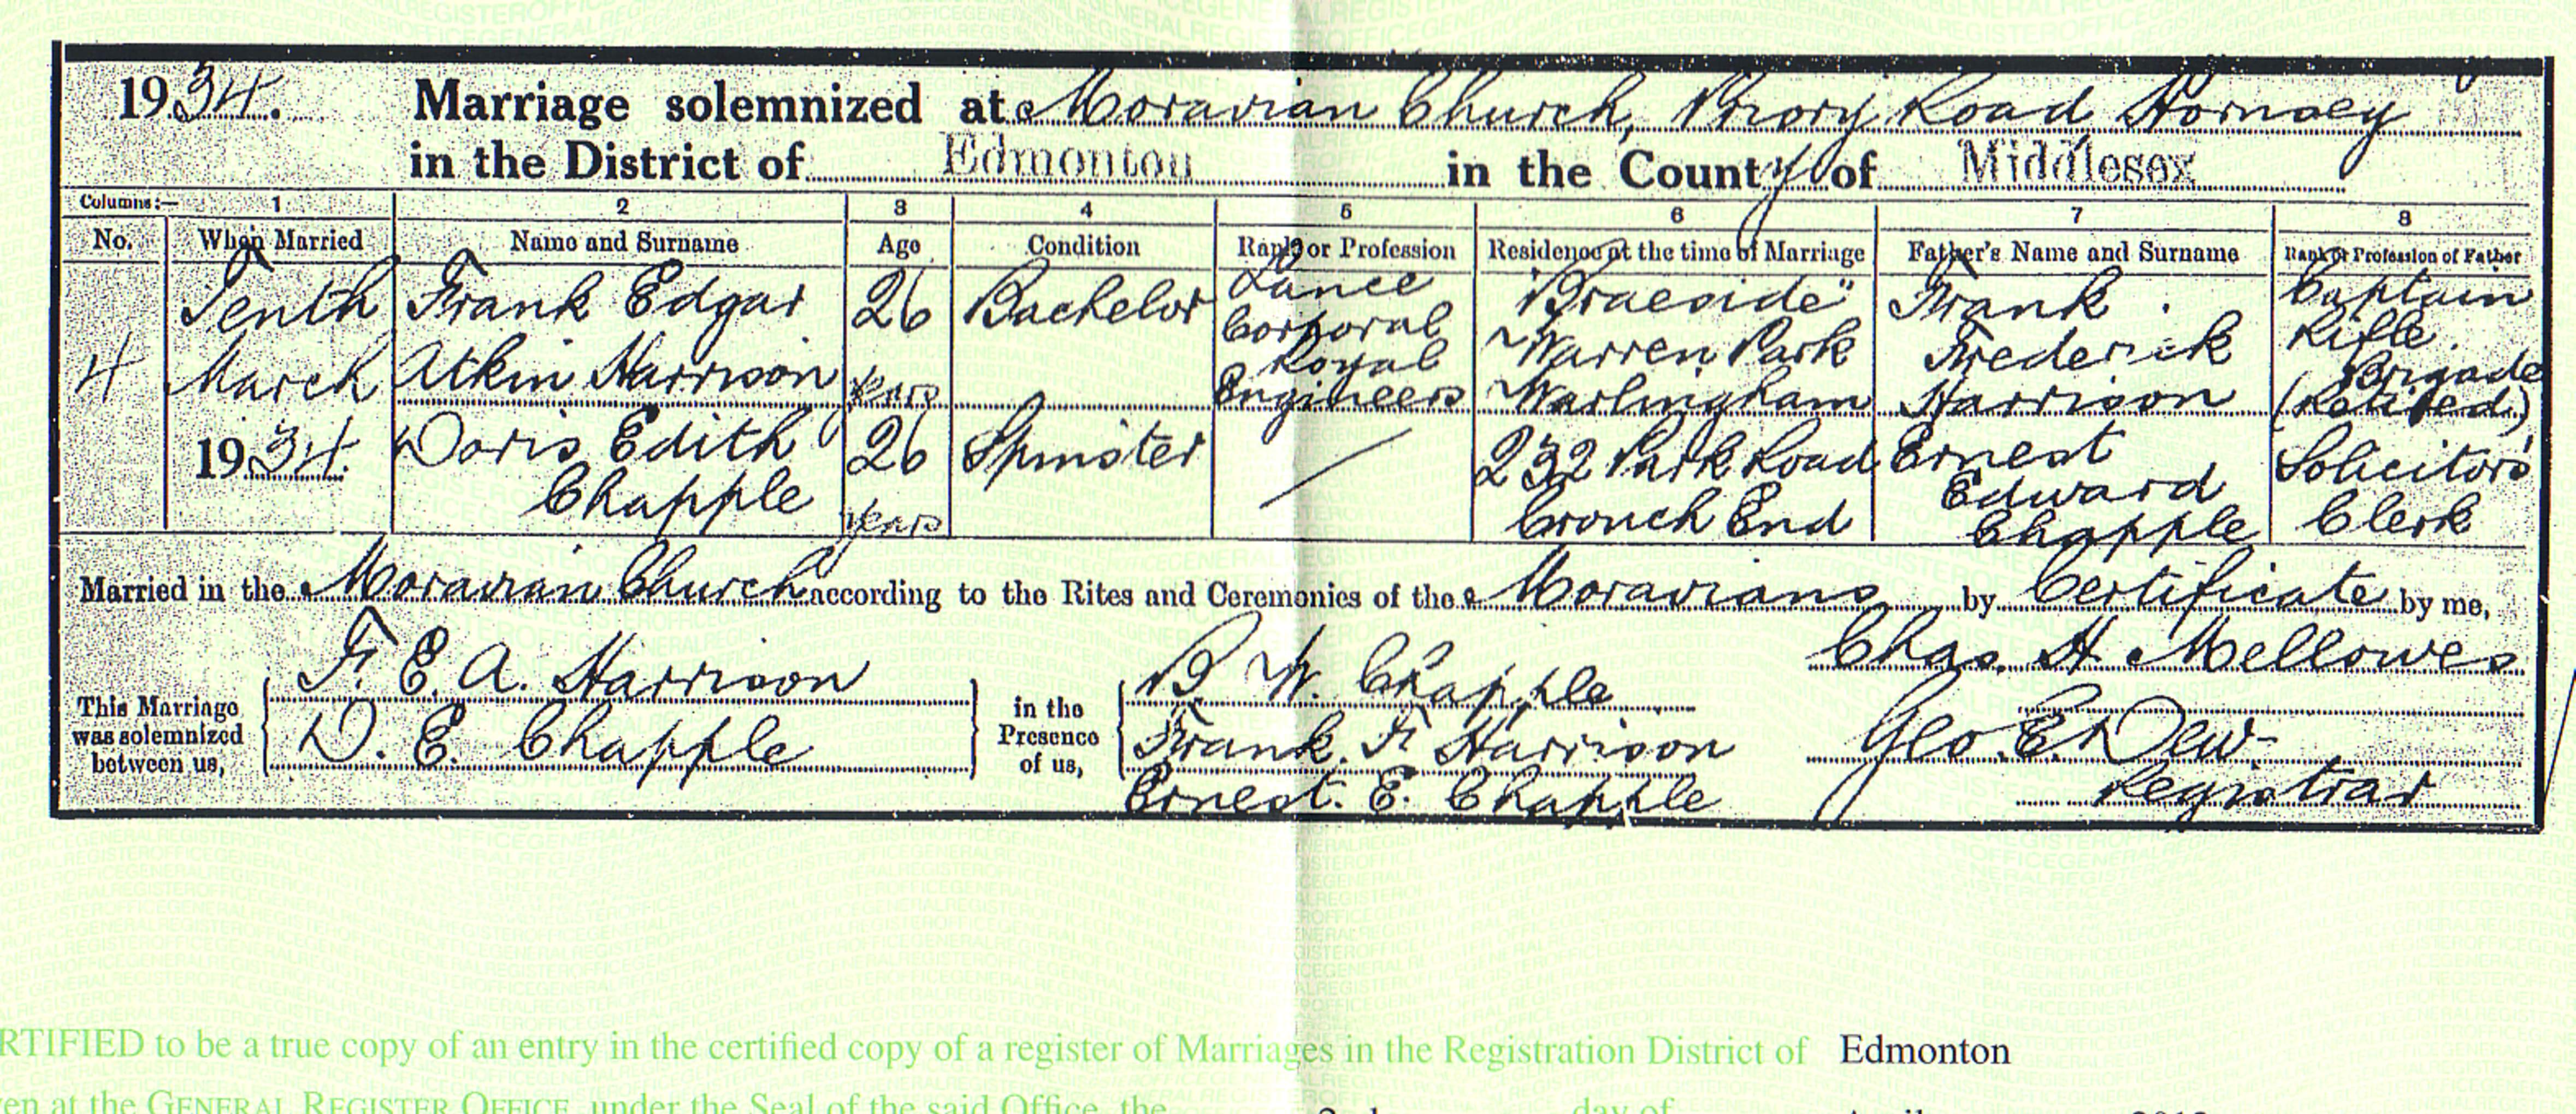 1934. Marriage solemnized at Moravian Church, Priory Road Hornsey
in the District of Edmonton in the County of Middlesex
Columns:— 1 2 3 4 5 6 7 8
No. When Married Name and Surname Age Condition Rank or Profession Residence at the time of Marriage Father's Name and Surname Rank or Profession of Father
4
Tenth
March
1934.
Frank Edgar
Atkin Harrison
26
years
Bachelor
Lance
Corporal
Royal
Engineers
"Braeside"
Warren Park
Warlingham
Frank
Frederick
Harrison
Captain
Rifle
Brigade
(Retired)
Doris Edith
Chapple
26
years
Spinster
232 Park Road
Crouch End
Ernest
Edward
Chapple
Solicitors'
Clerk
Married in the Moravian Church according to the Rites and Ceremonies of the Moravians by Certificate by me,
This Marriage
was solemnized
between us,
F. E. A. Harrison
D. E. Chapple
in the
Presence
of us,
B W. Chapple
Frank. F. Harrison
Ernest. E. Chapple
Chas. H Mellowes
Geo. E. Dew
Registrar
RTIFIED to be a true copy of an entry in the certified copy of a register of Marriages in the Registration District of Edmonton
en at the GENERAL REGISTER OFFICE, under the Seal of the said Office, the day of April